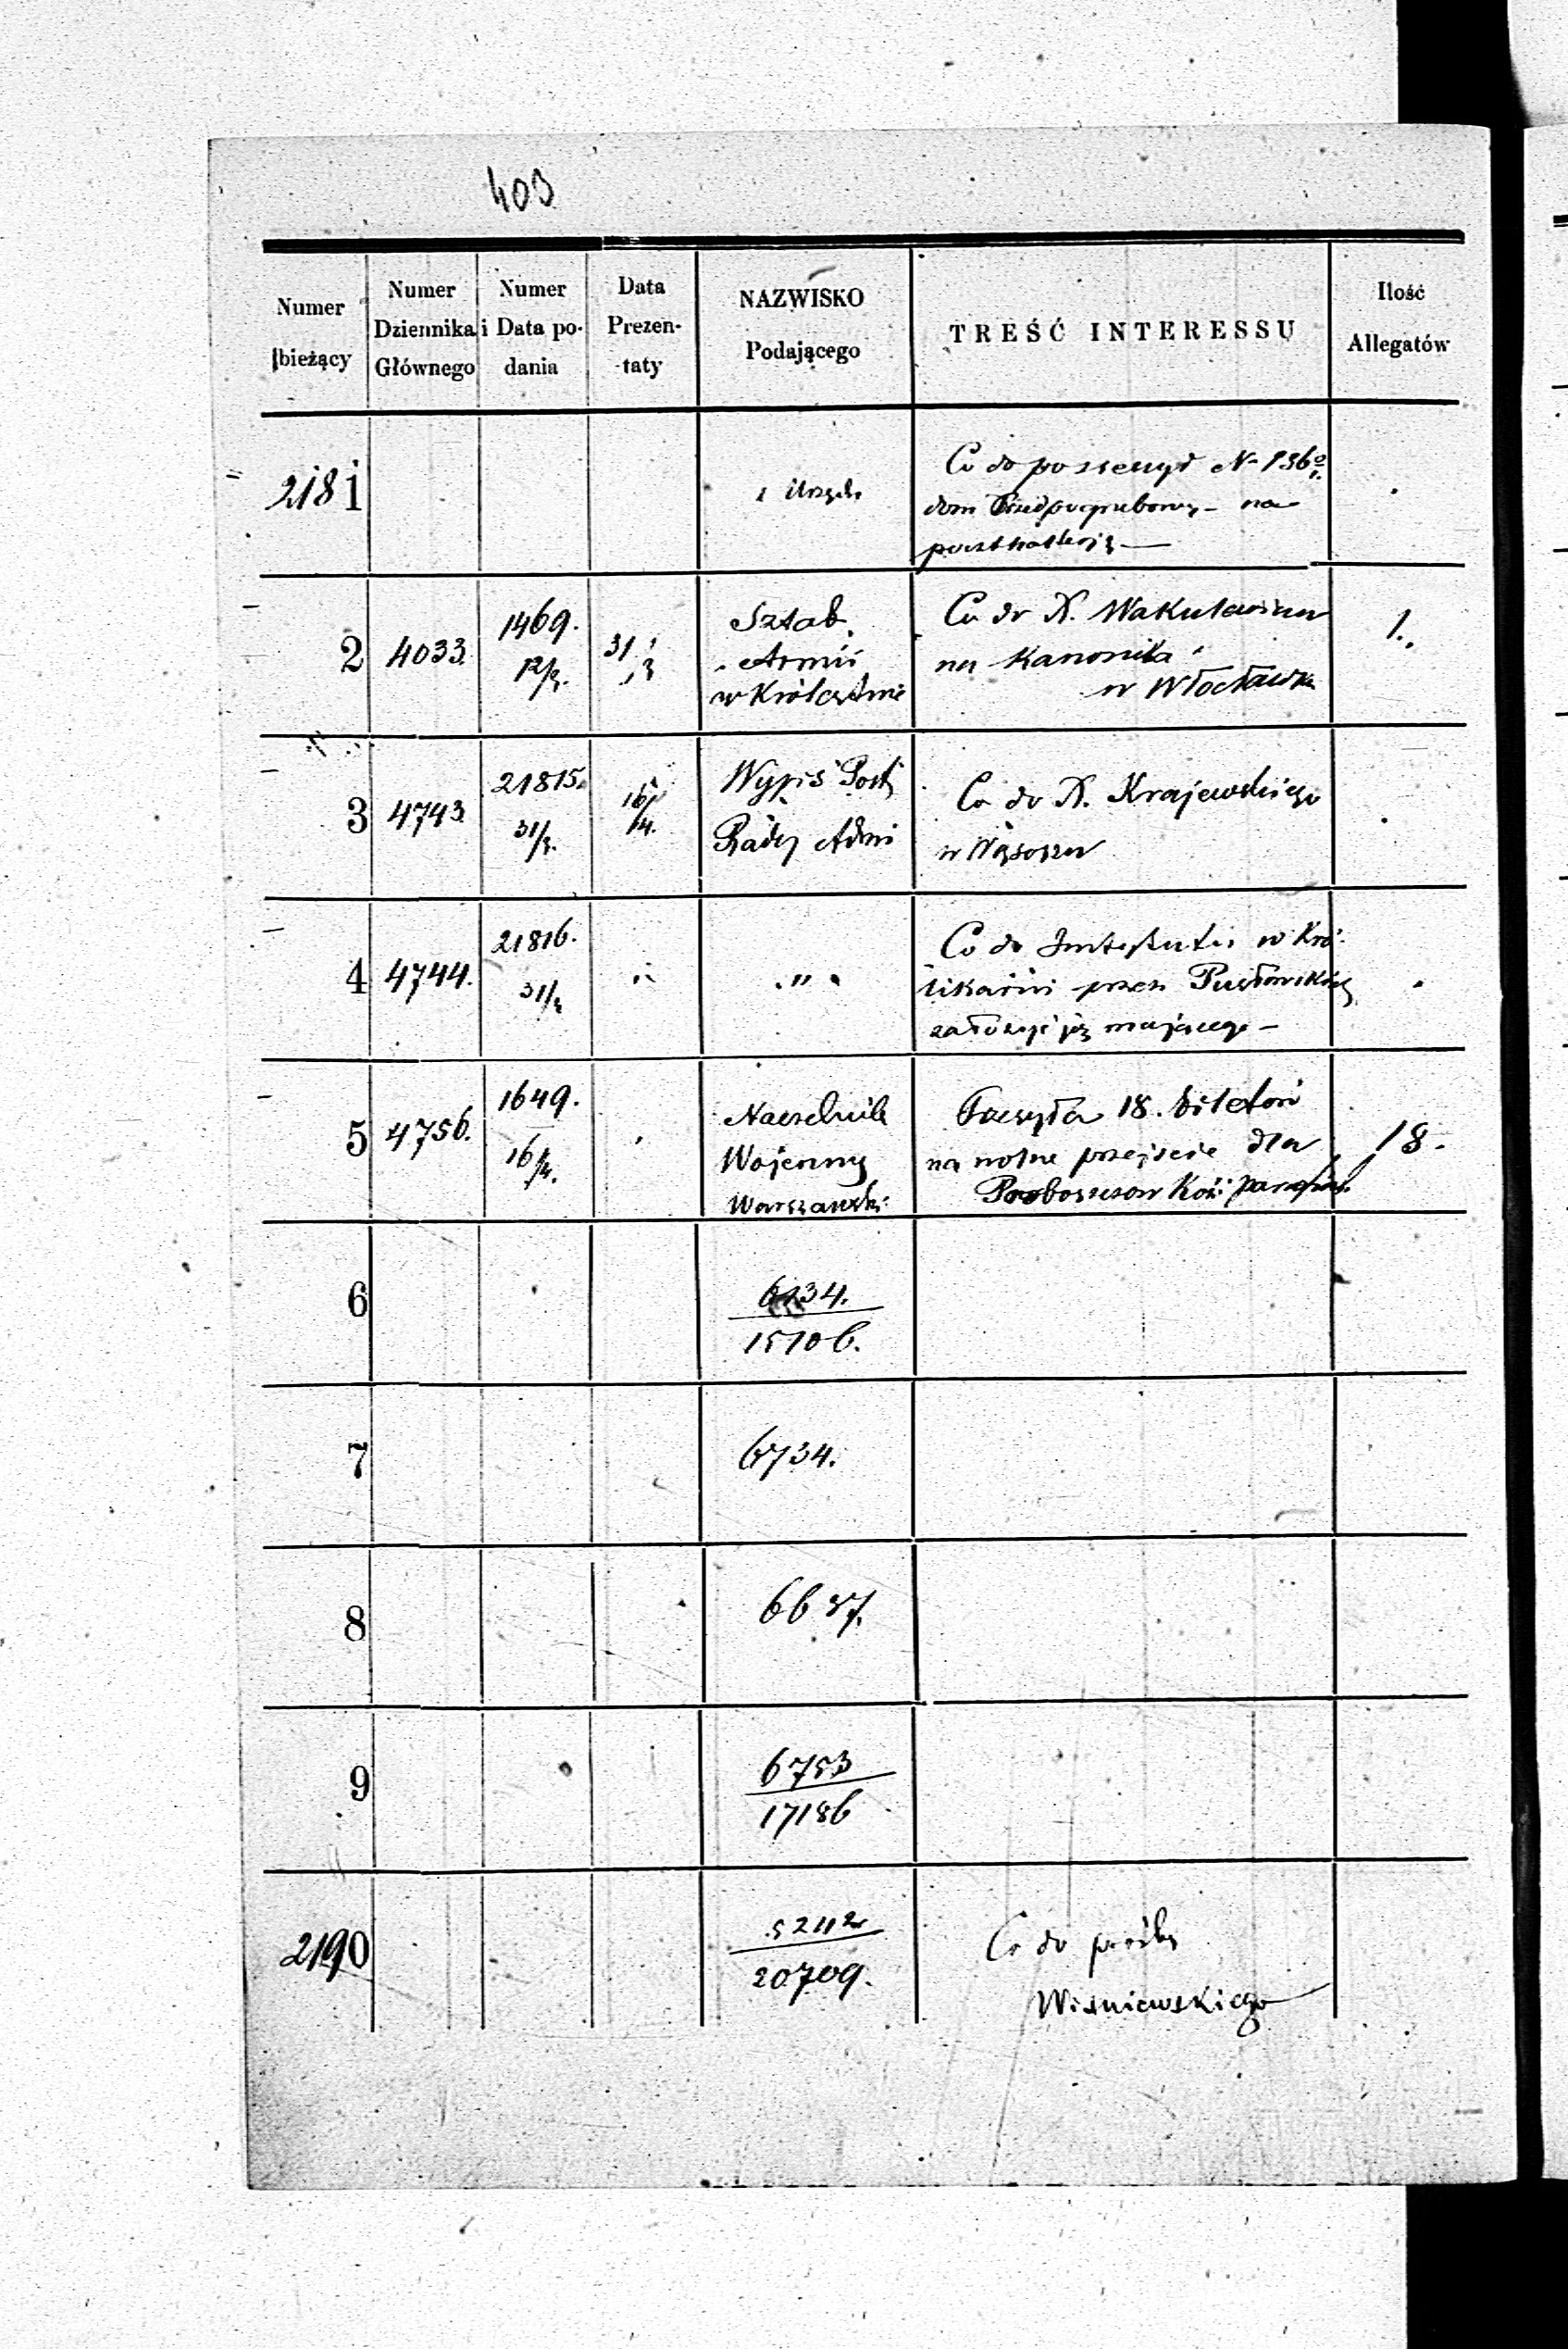 403
Numer bieżący
Numer Dziennika Głównego
Numer i Data podania
Data Prezentaty
NAZWISKO Podającego
TREŚĆ INTERESSU
Ilość Allegatów
2181
z Urzędu
Co do possessyi N. 136
dom na
2
4033.
1469.
12/3.
31/3
Sztab
Armii
w Królestwie
Co do X. Wakulewicza
na Kanonika
w Włocławku
1.
3
4743
21815.
31/3.
16/4.
Wypis Post
Rady Admi
Co do X. Krajewskiego
w Wąsoszu
4
4744.
21816.
31/3
"
"
Co do Instytutu w Kró-
likarni przez Pusłowskiego
założyć się mającego –
5
4756.
1649.
16/4.
Naczelnik
Wojenny
Warszawski
Przesyła 18. biletów
na wolne przejście dla
Proboszczów Koś: paraf:
18.
6
6734.
15106.
7
6734.
8
6637.
9
6753
17186
2190
20709.
Co do prośby
Wisniewskiego